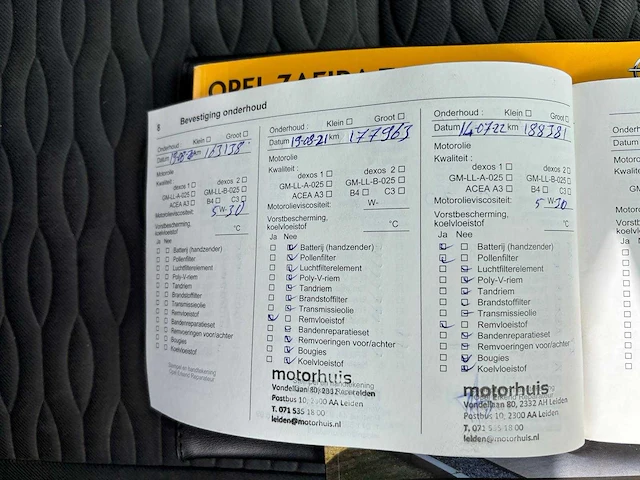 OPEL ZAFIRA
8 Bevestiging onderhoud
Onderhoud: Klein Groot
Datum km 163138
Motorolie
Kwaliteit:
dexos 1 dexos 2
GM-LL-A-025 GM-LL-B-025
ACEA A3 B4 C3
Motorolieviscositeit: 5 W- 30
Vorstbescherming,
koelvloeistof °C
Ja Nee
Batterij (handzender)
Pollenfilter
Luchtfilterelement
Poly-V-riem
Tandriem
Brandstoffilter
Transmissieolie
Remvloeistof
Bandenreparatieset
Remvoeringen voor/achter
Bougies
Koelvloeistof
Stempel en handtekening
Opel Erkend Reparateur
Onderhoud: Klein Groot
Datum 19-08-21 km 177963
Motorolie
Kwaliteit:
dexos 1 dexos 2
GM-LL-A-025 GM-LL-B-025
ACEA A3 B4 C3
Motorolieviscositeit: W-
Vorstbescherming,
koelvloeistof °C
Ja Nee
Batterij (handzender)
Pollenfilter
Luchtfilterelement
Poly-V-riem
Tandriem
Brandstoffilter
Transmissieolie
Remvloeistof
Bandenreparatieset
Remvoeringen voor/achter
Bougies
Koelvloeistof
motorhuis
Vondellaan 80, 2332 AH Leiden
Postbus 10, 2300 AA Leiden
T. 071 535 18 00
leiden@motorhuis.nl
Onderhoud: Klein Groot
Datum 14-07-22 km 188381
Motorolie
Kwaliteit:
dexos 1 dexos 2
GM-LL-A-025 GM-LL-B-025
ACEA A3 B4 C3
Motorolieviscositeit: 5 W- 30
Vorstbescherming,
koelvloeistof °C
Ja Nee
Batterij (handzender)
Pollenfilter
Luchtfilterelement
Poly-V-riem
Tandriem
Brandstoffilter
Transmissieolie
Remvloeistof
Bandenreparatieset
Remvoeringen voor/achter
Bougies
Koelvloeistof
motorhuis
Vondellaan 80, 2332 AH Leiden
Postbus 10, 2300 AA Leiden
T. 071 535 18 00
leiden@motorhuis.nl